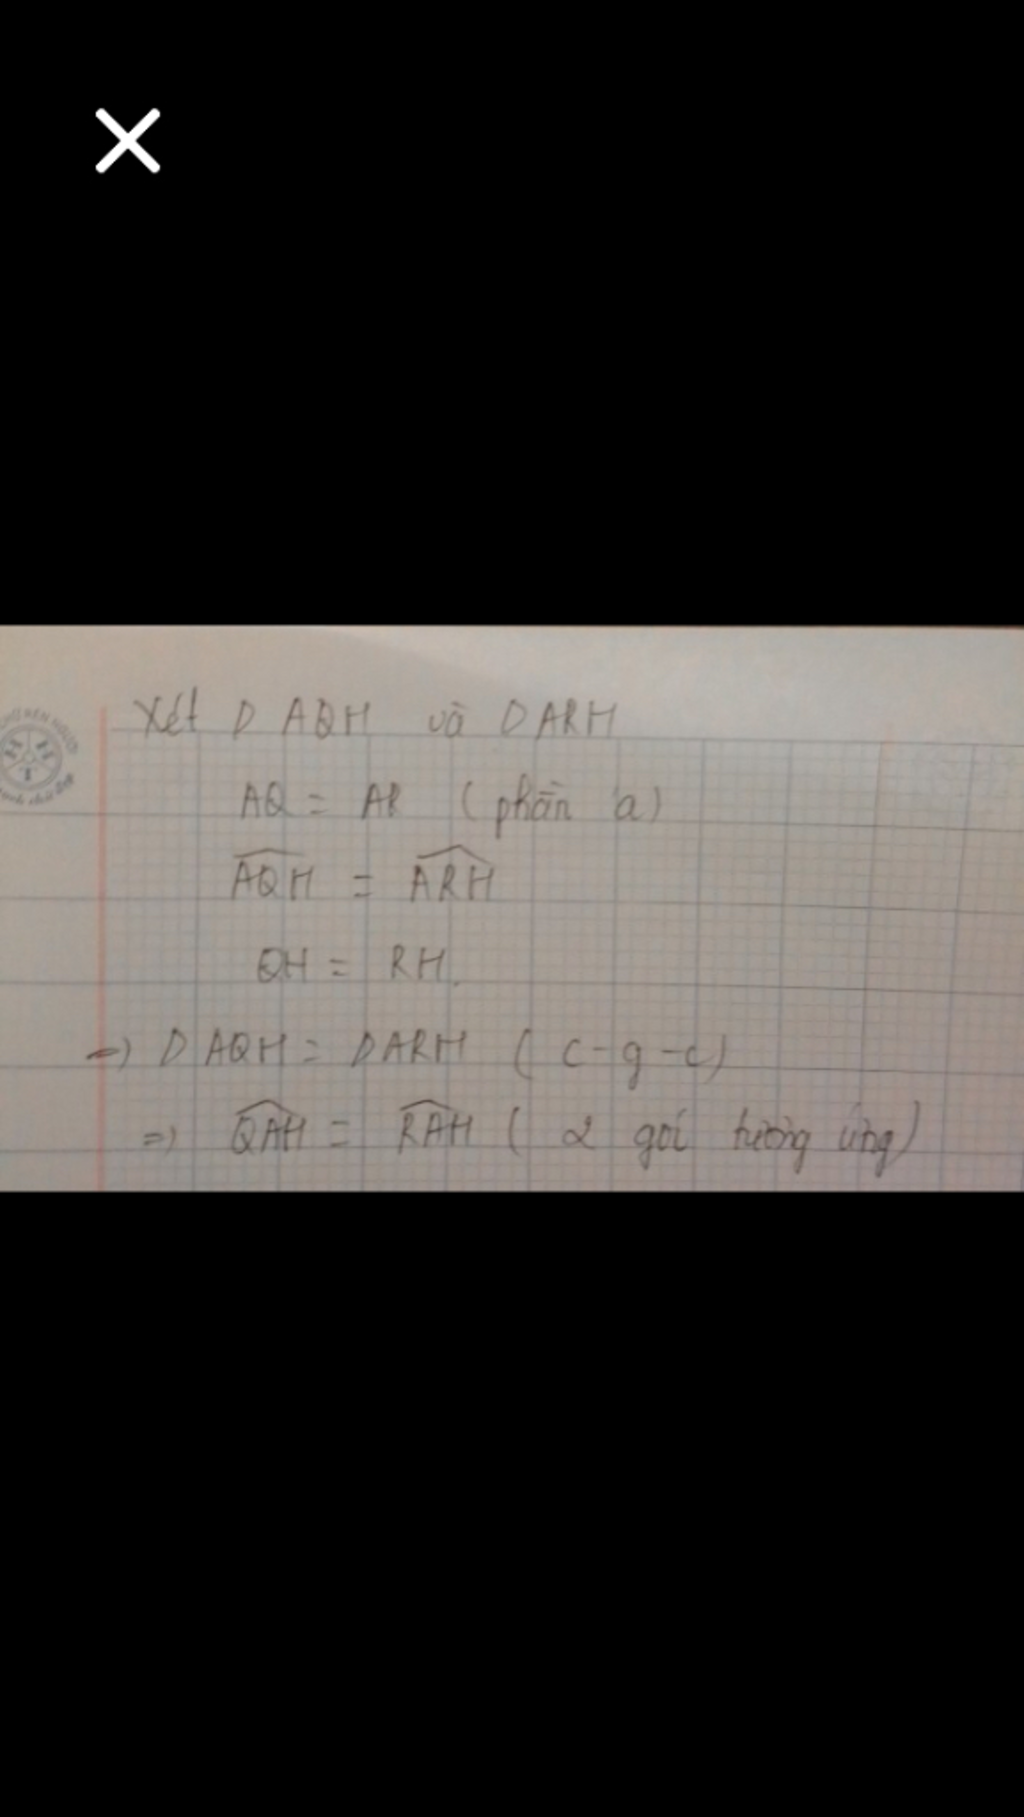 Xét D AQH và DARH
AQ = AR (phần a)
\widehat{AQH} = \widehat{ARH}
QH = RH.
=) D AQH = DARH ( c-g-c)
=) \widehat{QAH} = \widehat{RAH} ( 2 goí tương ứng)